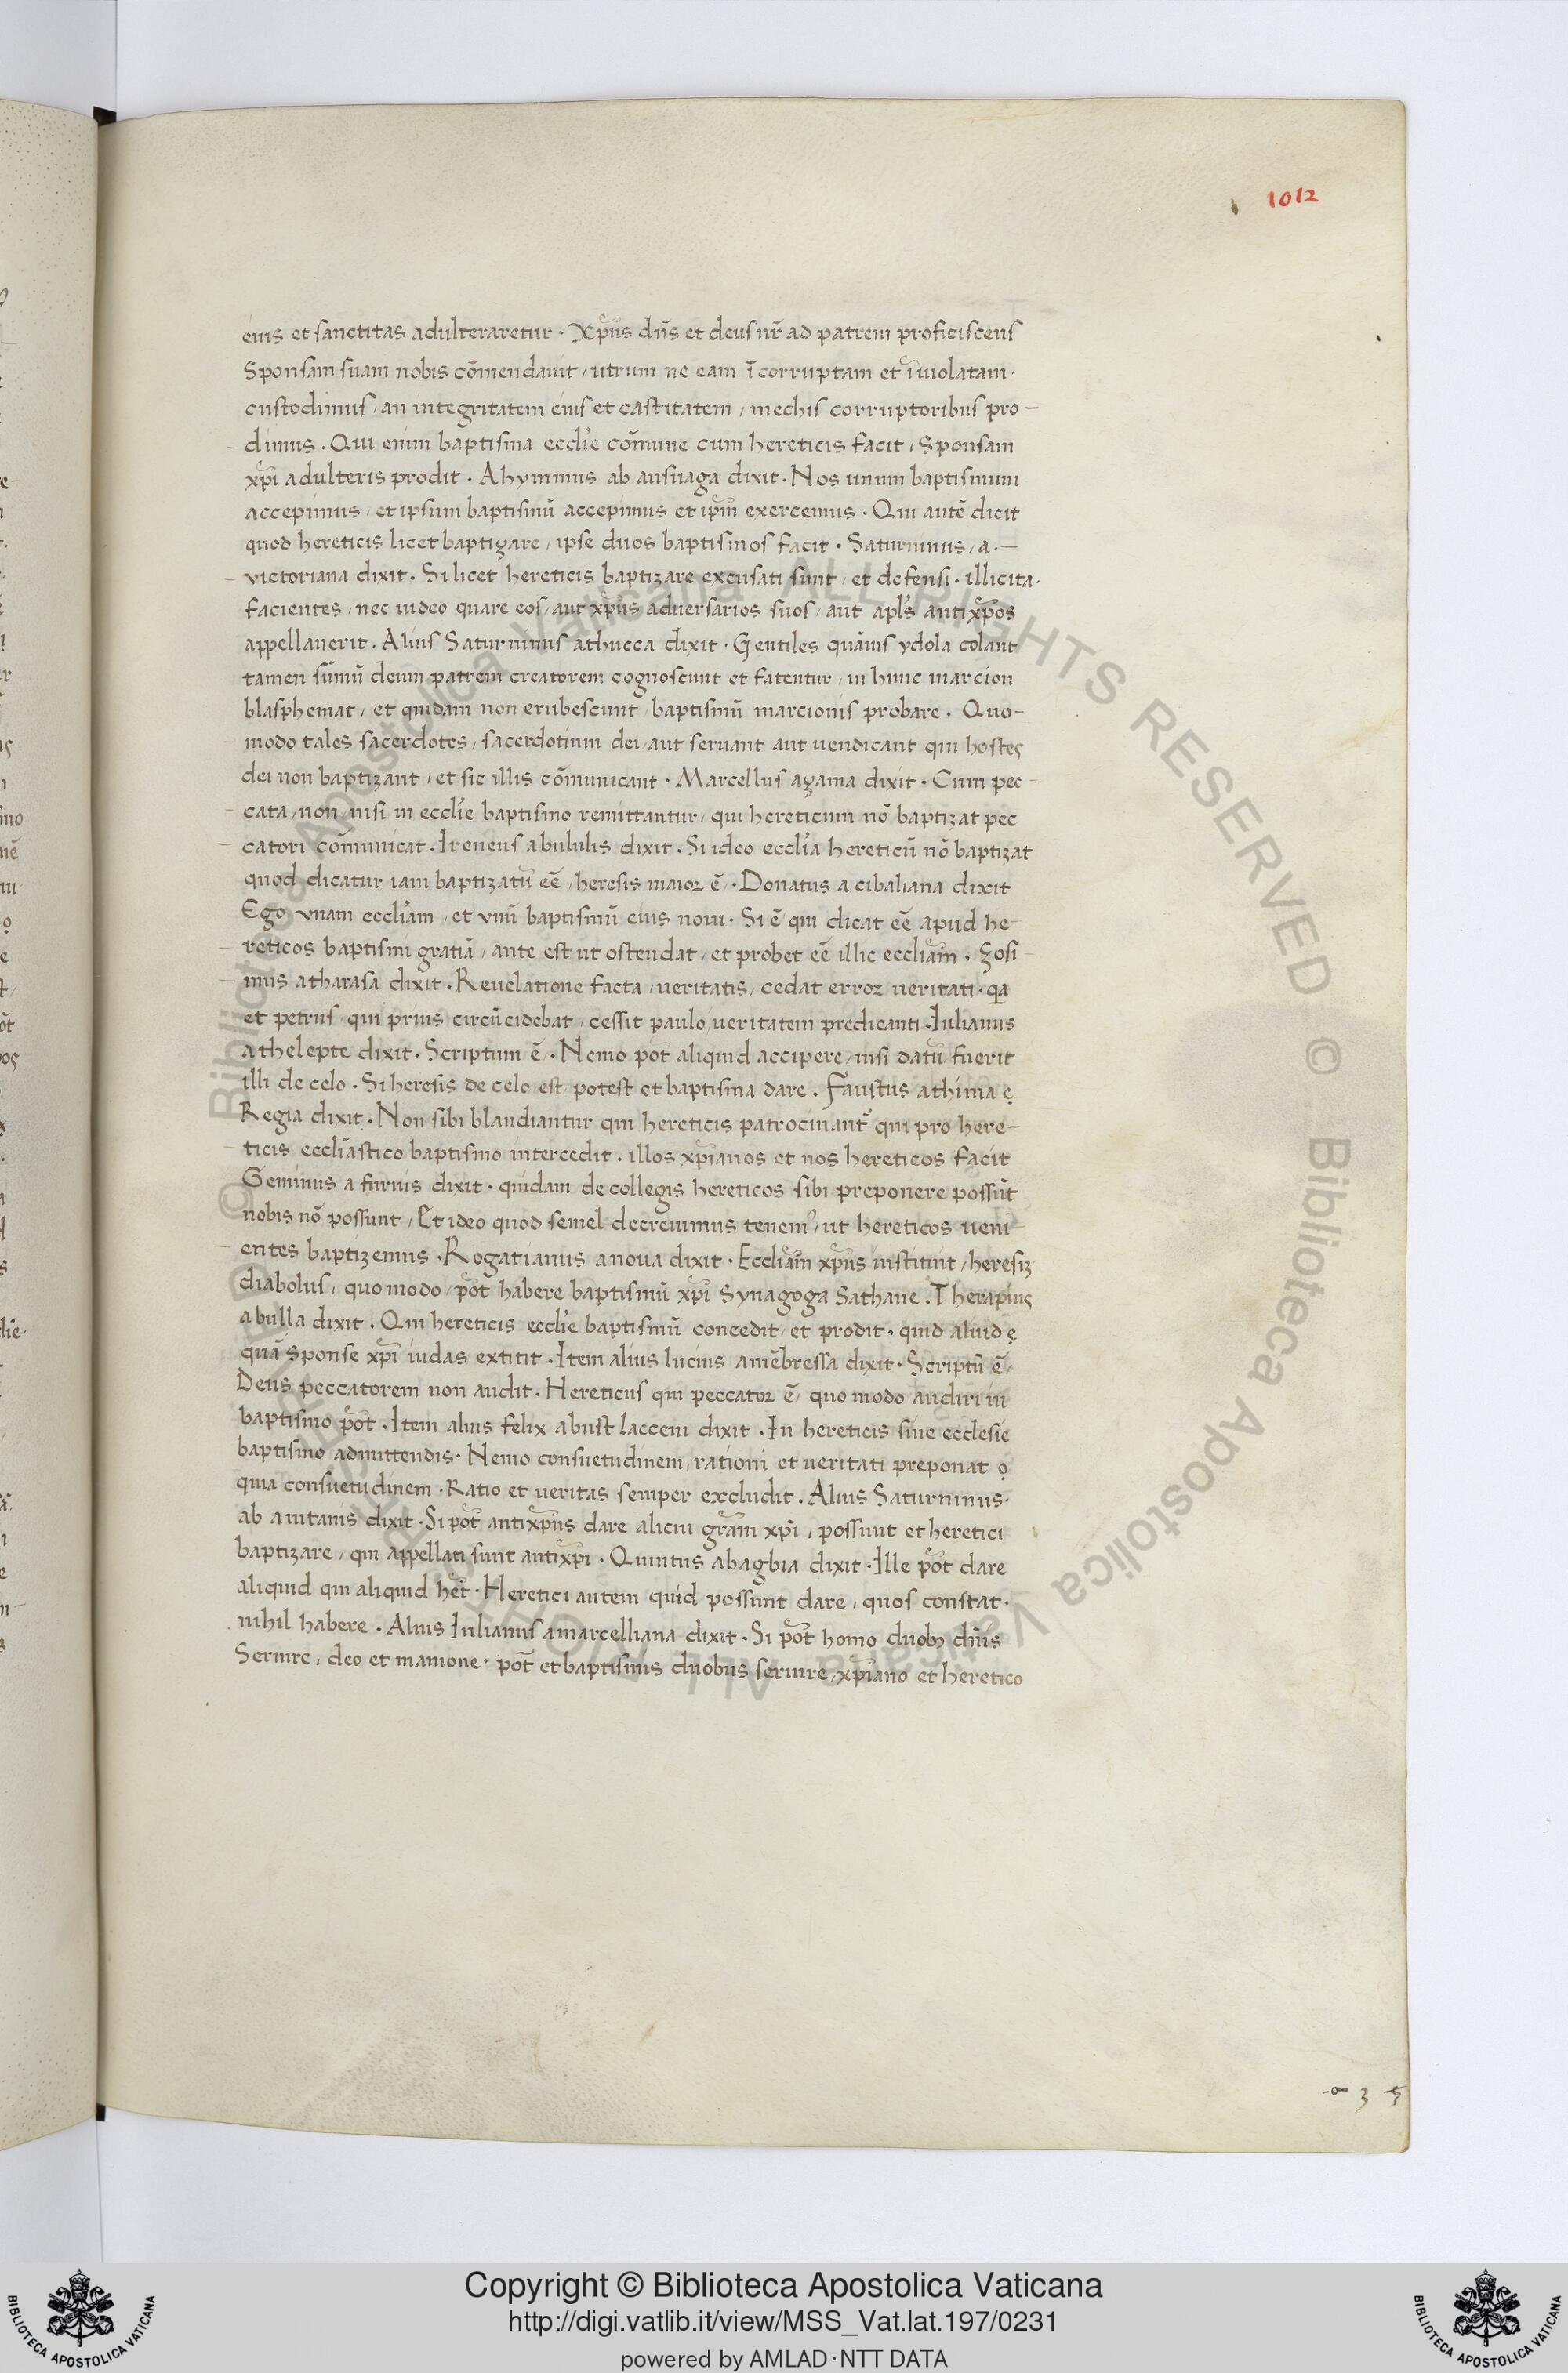 1012
eius et sanctitas adulteraretur · Xp̄us dn̄s et deus nr̄ ad patrem proficiscens
Sponsam suam nobis cōmendauit, utrum ne eam ī corruptam et īuiolatam·
custodimus, an integritatem eius et castitatem, mechis corruptoribus pro-
dimus. Qui enim baptisma eccl̄ie cōmune cum hereticis facit, Sponsam
xp̄i adulteris prodit. Ahymmus ab ausuaga dixit. Nos unum baptismum
accepimus, et ipsum baptismū accepimus et ip̄m exercemus. Qui autē dicit
quod hereticis licet baptizare, ipse duos baptismos facit. Saturninus, a.—
victoriana dixit. Si licet hereticis baptizare excusati sunt, et defensi. illicita.
facientes, nec uideo quare eos, aut xp̄us aduersarios suos, aut apl̄s antixp̄os
appellauerit. Alius Saturninus athucca dixit. Gentiles quāuis ydola colant
tamen sūmū deum patrem creatorem cognoscunt et fatentur, in hunc marcion
blasphemat, et quidam non erubescunt, baptismū marcionis probare. Quo-
modo tales sacerdotes, sacerdotium dei, aut seruant aut uendicant qui hostes
dei non baptizant, et sic illis cōmunicant. Marcellus azama dixit. Cum pec-
cata, non, nisi in eccl̄ie baptismo remittantur, qui hereticum nō baptizat pec
catori cōmunicat. Ireneus abululis dixit. Si ideo eccl̄ia hereticū nō baptizat
quod dicatur iam baptizatū eē, heresis maior ē. Donatus a cibaliana dixit
Ego vnam eccl̄iam, et vnū baptismū eius noui. Si ē qui dicat eē apud he-
reticos baptismi gratiā, ante est ut ostendat, et probet eē illic eccliam̄. Zosi-
mus atharasa dixit. Reuelatione facta, ueritatis, cedat error ueritati. qa
et petrus, qui prius circūcidebat, cessit paulo, ueritatem predicanti. Iulianus
athelepte dixit. Scriptum ē. Nemo pōt aliquid accipere, nisi datū fuerit
illi de celo. Si heresis de celo est potest et baptisma dare. Faustus athima ę
Regia dixit. Non sibi blandiantur qui hereticis patrocinant̄ qui pro here-
ticis eccliāstico baptismo intercedit. illos xp̄ianos et nos hereticos facit
Geminus a furnis dixit. quidam de collegis hereticos sibi preponere possūt
nobis nō possunt, Et ideo quod semel decreuimus tenem᾽, ut hereticos ueni-
entes baptizemus. Rogatianus anoua dixit. Eccliam̄ xp̄us instituit, heresiz
diabolus, quo modo, pōt habere baptismū xp̄i Synagoga Sathane. Therapius
abulla dixit. Qui hereticis eccl̄ie baptismū concedit, et prodit. quid aliud ę
quā Sponse xp̄i iudas extitit. Item alius lucius amēbressa dixit. Scriptū ē,
Deus peccatorem non audit. Hereticus qui peccator ē, quo modo audiri in
baptismo pōt. Item alius felix abust laccem dixit. In hereticis sine ecclesie
baptismo admittendis. Nemo consuetudinem, rationi et ueritati preponat ọ
quia consuetudinem. Ratio et ueritas semper excludit. Alius Saturninus.
ab auitanis dixit. Si pōt antixp̄us dare alicui grām xp̄i, possunt et heretici
baptizare, qui appellati sunt antixp̄i. Quintus abagbia dixit. Ille pōt dare
aliquid qui aliquid het̄. Heretici autem quid possunt dare, quos constat.
nihil habere. Alius Iulianus amarcelliana dixit. Si pōt homo duobꝫ dn̄is
Seruire, deo et mamone. pōt et baptismus duobus seruire, xp̄iano et heretico
© Biblioteca Apostolica Vaticana ALL RIGHTS RESERVED © Biblioteca Apostolica Vaticana ALL RIGHTS RESERVED
Copyright © Biblioteca Apostolica Vaticana
http://digi.vatlib.it/view/MSS_Vat.lat.197/0231
powered by AMLAD·NTT DATA
BIBLIOTECA APOSTOLICA VATICANA
BIBLIOTECA APOSTOLICA VATICANA